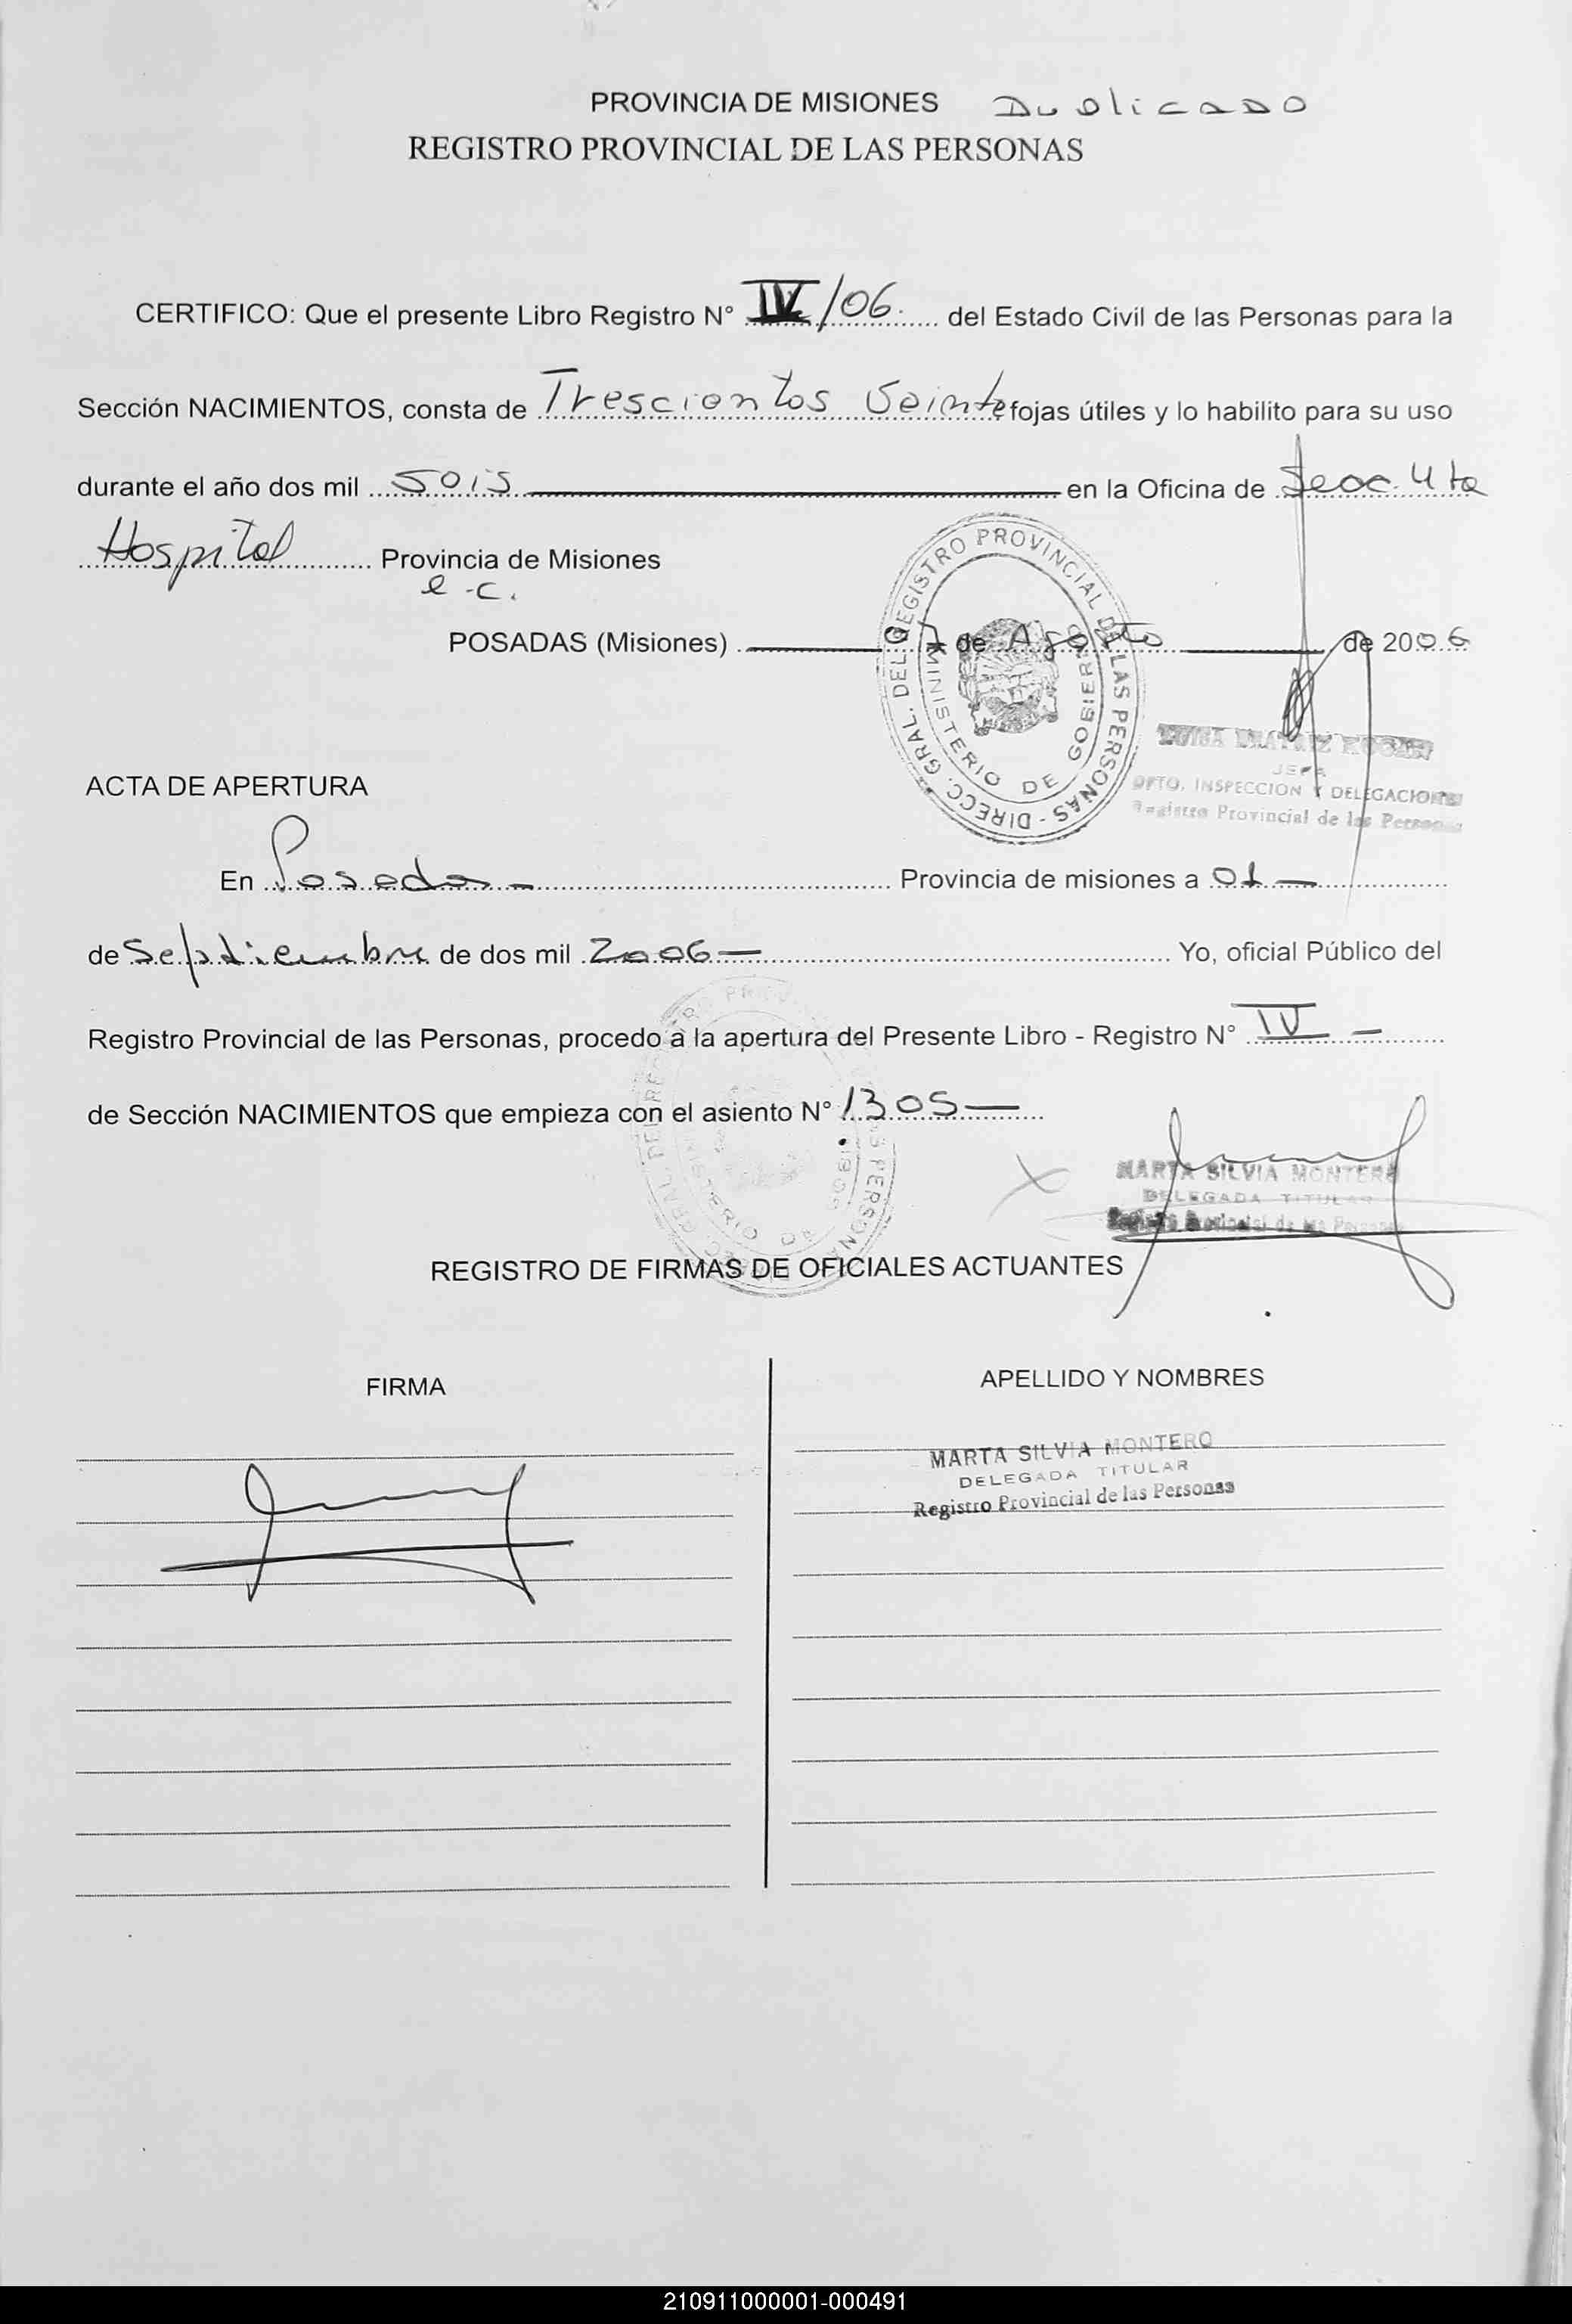 PROVINCIA DE MISIONES Duplicado
REGISTRO PROVINCIAL DE LAS PERSONAS
CERTIFICO: Que el presente Libro Registro N° IV/06. del Estado Civil de las Personas para la
Sección NACIMIENTOS, consta de Trescientos Veinte fojas útiles y lo habilito para su uso
durante el año dos mil Seis en la Oficina de Secc. 4ta
Hospital Provincia de Misiones
POSADAS (Misiones) de Agosto de 2006
DIRECC. GRAL. DEL REGISTRO PROVINCIAL DE LAS PERSONAS -
MINISTERIO DE GOBIERNO
JEFA
DPTO. INSPECCION Y DELEGACIONES
Registro Provincial de las Personas
ACTA DE APERTURA
En Posadas - Provincia de misiones a 01 -
de Septiembre de dos mil 2006 - Yo, oficial Público del
Registro Provincial de las Personas, procedo a la apertura del Presente Libro - Registro N° IV -
de Sección NACIMIENTOS que empieza con el asiento N° 1305 -
MARTA SILVIA MONTERO
DELEGADA TITULAR
Registro Provincial de las Personas
REGISTRO DE FIRMAS DE OFICIALES ACTUANTES
FIRMA APELLIDO Y NOMBRES
MARTA SILVIA MONTERO
DELEGADA TITULAR
Registro Provincial de las Personas
210911000001-000491